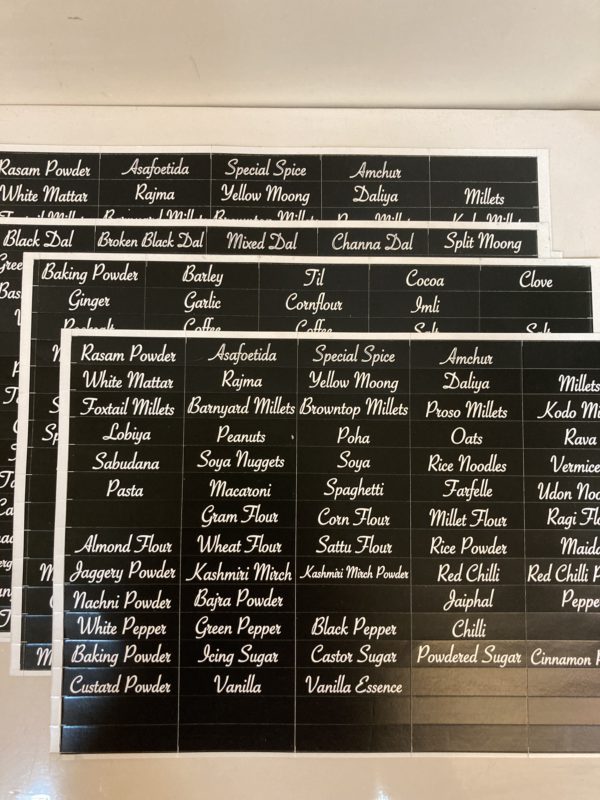 Rasam Powder Asafoetida Special Spice Amchur
White Mattar Rajma Yellow Moong Daliya Millets
Black Dal Broken Black Dal Mixed Dal Channa Dal Split Moong
Baking Powder Barley Til Cocoa Clove
Ginger Garlic Cornflour Imli
Coffee Coffee Salt Salt
Rasam Powder Asafoetida Special Spice Amchur
White Mattar Rajma Yellow Moong Daliya Millets
Foxtail Millets Barnyard Millets Browntop Millets Proso Millets Kodo Mi
Lobiya Peanuts Poha Oats Rava
Sabudana Soya Nuggets Soya Rice Noodles Vermice
Pasta Macaroni Spaghetti Farfelle Udon Noo
Gram Flour Corn Flour Millet Flour Ragi Flo
Almond Flour Wheat Flour Sattu Flour Rice Powder Maida
Jaggery Powder Kashmiri Mirch Kashmiri Mirch Powder Red Chilli Red Chilli P
Nachni Powder Bajra Powder Jaiphal Peppe
White Pepper Green Pepper Black Pepper Chilli
Baking Powder Icing Sugar Castor Sugar Powdered Sugar Cinnamon P
Custard Powder Vanilla Vanilla Essence